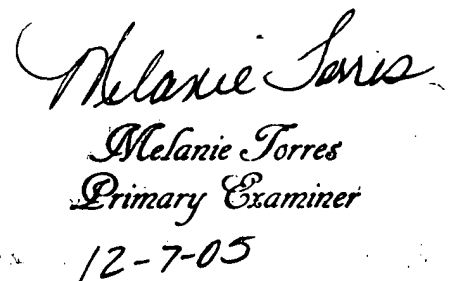 Melanie Torres
Melanie Torres
Primary Examiner
12-7-05